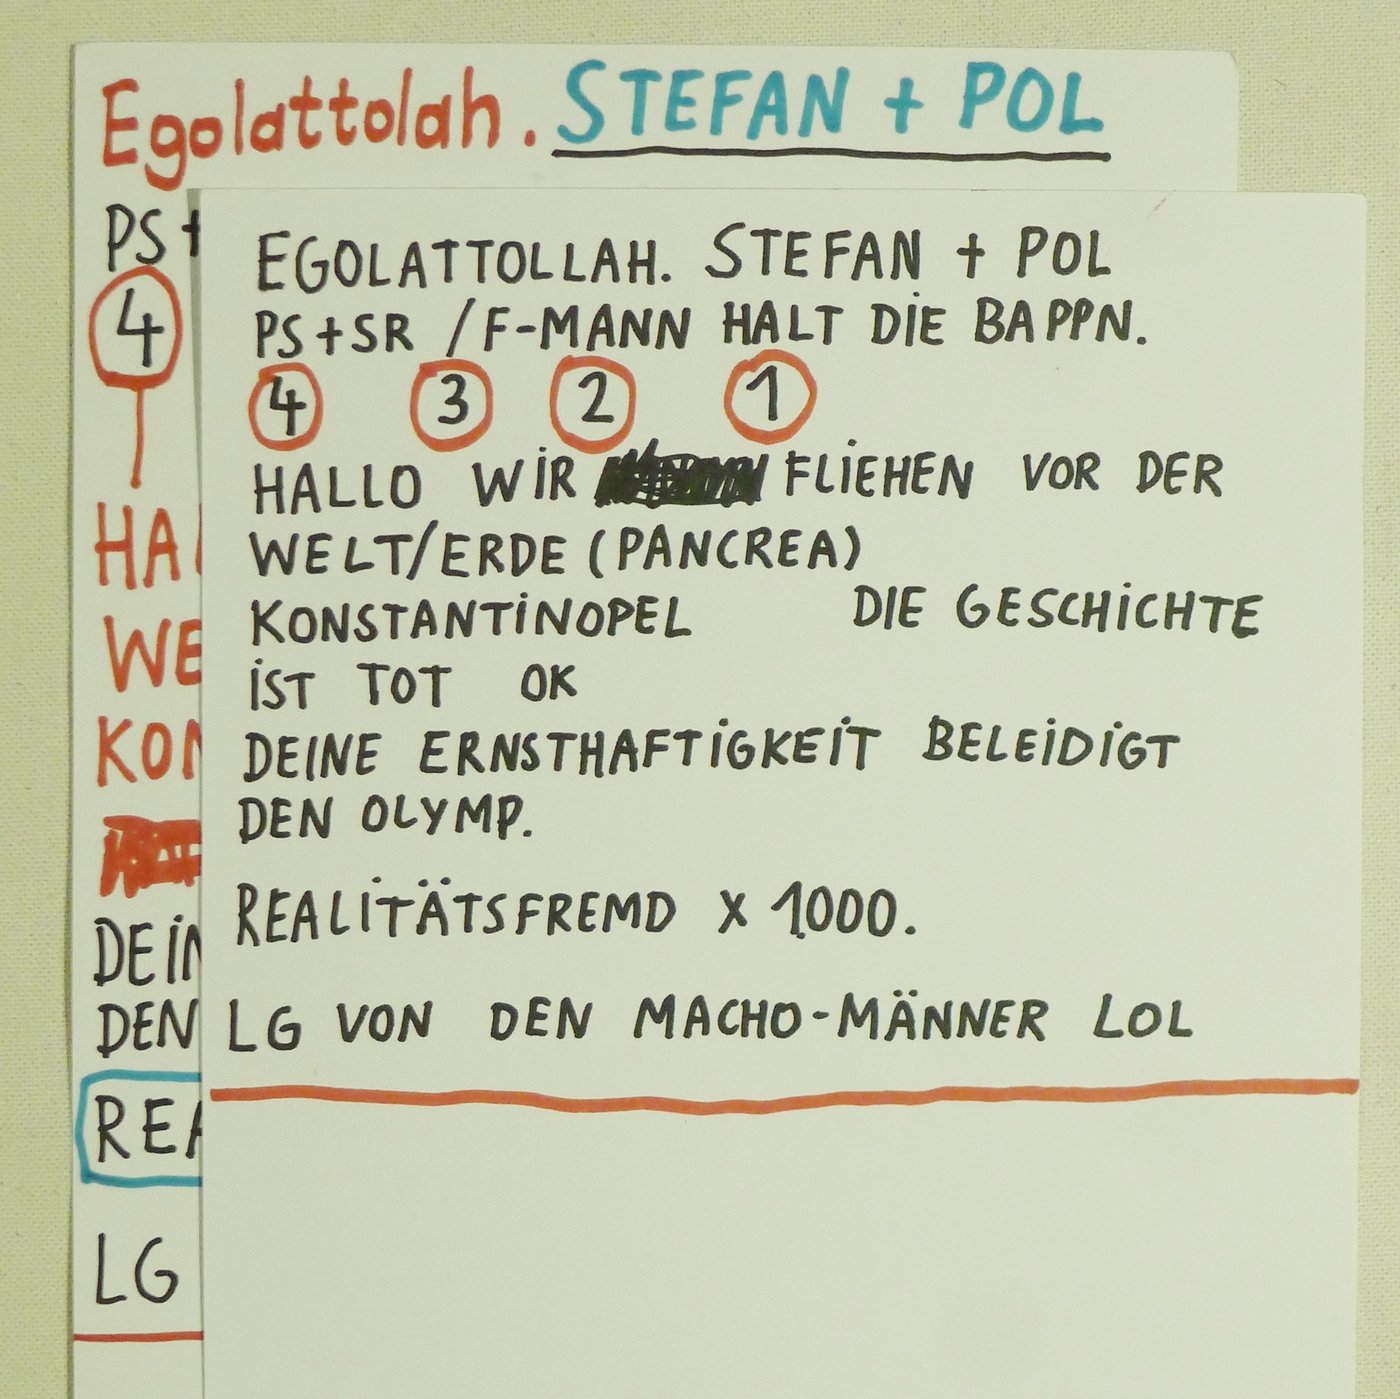 Egolattolah. STEFAN + POL
PS+
4
HAL
WE
KON
DEIN
DEN
REA
LG
EGOLATTOLLAH. STEFAN + POL
PS+SR /F-MANN HALT DIE BAPPN.
4 3 2 1
HALLO WIR FLIEHEN VOR DER
WELT/ERDE (PANCREA)
KONSTANTINOPEL DIE GESCHICHTE
IST TOT OK
DEINE ERNSTHAFTIGKEIT BELEIDIGT
DEN OLYMP.
REALITÄTSFREMD X 1.000.
LG VON DEN MACHO-MÄNNER LOL